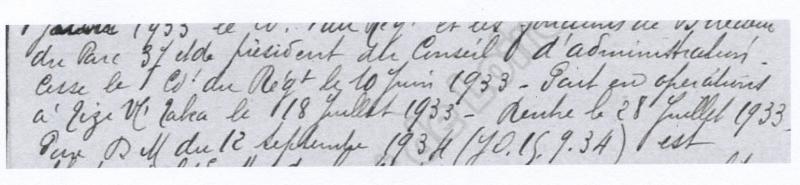 1933 le Cdt du Régt et les fonctions de Directeur
du Parc 37 et de président du Conseil d'administration.
Cesse le Cdt du Régt le 10 Juin 1933 - Part en opérations
à Tizi N' Taka le 18 Juillet 1933 - Rentre le 28 Juillet 1933.
Par D M du 12 septembre 1934 (JO. 15.9.34) est